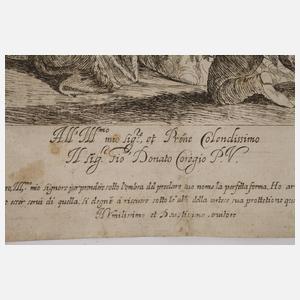 All Ill.mo mio Sig.r et Prōne Colendissimo
Il Sig.r Gio Donato Coregio P. V.
Ill.mo mio signore per prendere sotto l'ombra del preclaro suo nome la perfetta forma. Ho ar
servi di quella. Si degni à ricevere sotto le ali della cortese sua protettione que
Humilissimo et Devotissimo servitore